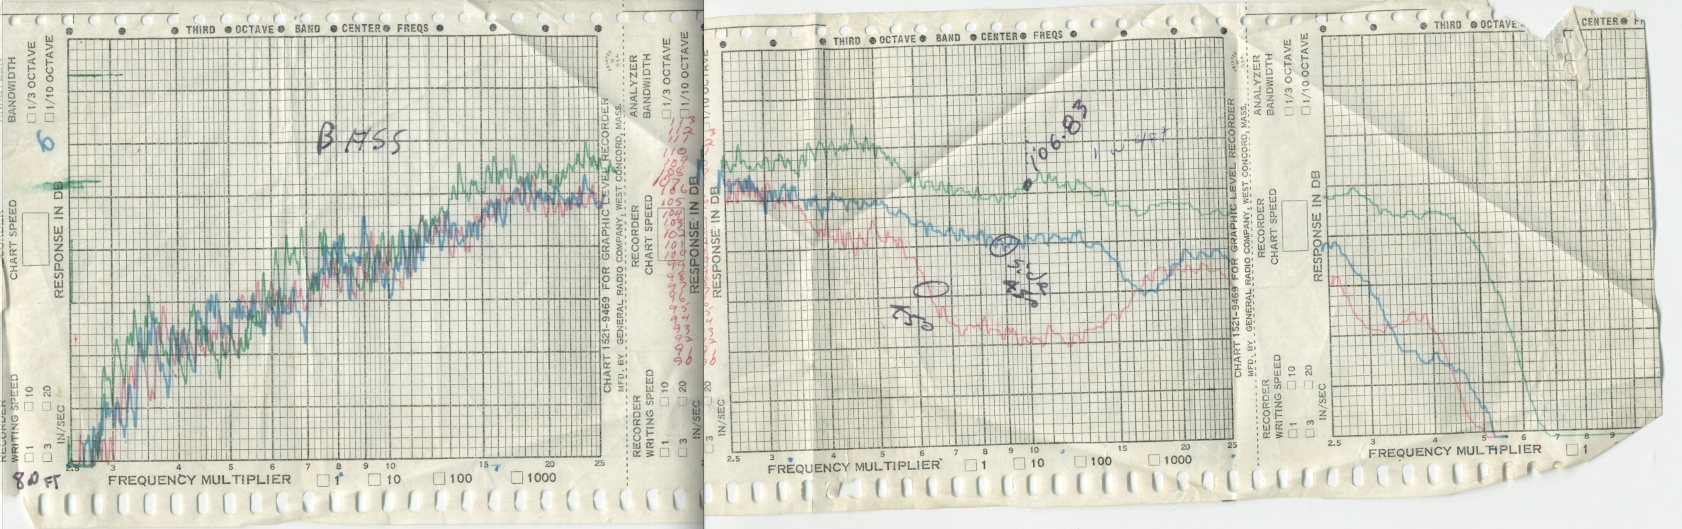 THIRD OCTAVE BAND CENTER FREQS
BANDWIDTH
1/3 OCTAVE
1/10 OCTAVE
6
BASS
CHART SPEED
RESPONSE IN DB
RECORDER
WRITING SPEED
1 10
3 20
IN/SEC
2.5 3 4 5 6 7 8 9 10 15 20 25
80 FT
FREQUENCY MULTIPLIER 1 10 100 1000
CHART 1521-9469 FOR GRAPHIC LEVEL RECORDER
MFD. BY GENERAL RADIO COMPANY, WEST CONCORD, MASS.
ANALYZER
BANDWIDTH
1/3 OCTAVE
1/10 OCTAVE
113
112
111
110
109
108
107
106
105
104
103
102
101
100
99
98
97
96
95
94
93
92
91
90
RECORDER
CHART SPEED
RESPONSE IN DB
RECORDER
WRITING SPEED
1 10
3 20
IN/SEC
THIRD OCTAVE BAND CENTER FREQS
106.83
RESPONSE IN DB
3 20
IN/SEC
2.5 3 4 5 6 7 8 9 10 15 20 25
FREQUENCY MULTIPLIER 1 10 100 1000
CHART 1521-9469 FOR GRAPHIC LEVEL RECORDER
MFD. BY GENERAL RADIO COMPANY, WEST CONCORD, MASS.
ANALYZER
BANDWIDTH
1/3 OCTAVE
1/10 OCTAVE
RECORDER
CHART SPEED
RESPONSE IN DB
RECORDER
WRITING SPEED
1 10
3 20
IN/SEC
THIRD OCTAVE
CENTER
2.5 3 4 5 6 7 8 9
FREQUENCY MULTIPLIER 1